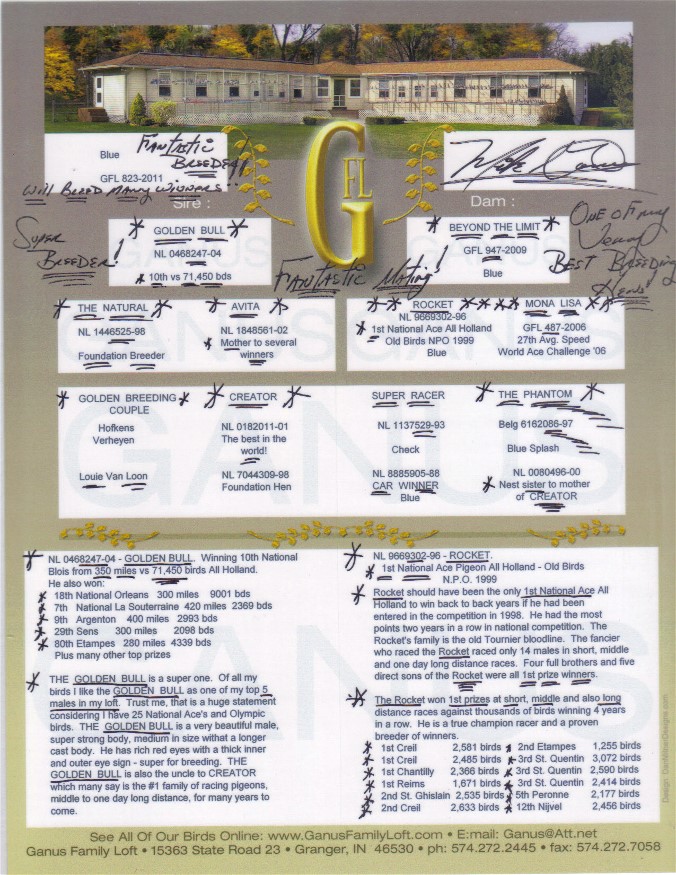 Blue
FANTASTIC
BREEDER!
GFL 823-2011
WILL BREED MANY WINNERS
GFL
Sire :
Dam :
SUPER
BREEDER!
GOLDEN BULL
NL 0468247-04
10th vs 71,450 bds
FANTASTIC MATING!
BEYOND THE LIMIT
GFL 947-2009
Blue
ONE OF MY
BEST BREEDING
HENS!
THE NATURAL
NL 1446525-98
Foundation Breeder
AVITA
NL 1848561-02
Mother to several
winners
ROCKET
NL 9669302-96
1st National Ace All Holland
Old Birds NPO 1999
Blue
MONA LISA
GFL 487-2006
27th Avg. Speed
World Ace Challenge '06
GOLDEN BREEDING
COUPLE
Hofkens
Verheyen
Louie Van Loon
CREATOR
NL 0182011-01
The best in the
world!
NL 7044309-98
Foundation Hen
SUPER RACER
NL 1137529-93
Check
NL 8885905-88
CAR WINNER
Blue
THE PHANTOM
Belg 6162086-97
Blue Splash
NL 0080496-00
Nest sister to mother
of CREATOR
GANUS
NL 0468247-04 - GOLDEN BULL. Winning 10th National
Blois from 350 miles vs 71,450 birds All Holland.
He also won:
18th National Orleans 300 miles 9001 bds
7th National La Souterraine 420 miles 2369 bds
9th Argenton 400 miles 2993 bds
29th Sens 300 miles 2098 bds
80th Etampes 280 miles 4339 bds
Plus many other top prizes
THE GOLDEN BULL is a super one. Of all my
birds I like the GOLDEN BULL as one of my top 5
males in my loft. Trust me, that is a huge statement
considering I have 25 National Ace's and Olympic
birds. THE GOLDEN BULL is a very beautiful male,
super strong body, medium in size witha a longer
cast body. He has rich red eyes with a thick inner
and outer eye sign - super for breeding. THE
GOLDEN BULL is also the uncle to CREATOR
which many say is the #1 family of racing pigeons,
middle to one day long distance, for many years to
come.
NL 9669302-96 - ROCKET.
1st National Ace Pigeon All Holland - Old Birds
N.P.O. 1999
Rocket should have been the only 1st National Ace All
Holland to win back to back years if he had been
entered in the competition in 1998. He had the most
points two years in a row in national competition. The
Rocket's family is the old Tournier bloodline. The fancier
who raced the Rocket raced only 14 males in short, middle
and one day long distance races. Four full brothers and five
direct sons of the Rocket were all 1st prize winners.
The Rocket won 1st prizes at short, middle and also long
distance races against thousands of birds winning 4 years
in a row. He is a true champion racer and a proven
breeder of winners.
1st Creil 2,581 birds 2nd Etampes 1,255 birds
1st Creil 2,485 birds 3rd St. Quentin 3,072 birds
1st Chantilly 2,366 birds 3rd St. Quentin 2,590 birds
1st Reims 1,671 birds 3rd St. Quentin 2,414 birds
2nd St. Ghislain 2,535 birds 5th Peronne 2,177 birds
2nd Creil 2,633 birds 12th Nijvel 2,456 birds
See All Of Our Birds Online: www.GanusFamilyLoft.com • E:mail: Ganus@Att.net
Ganus Family Loft • 15363 State Road 23 • Granger, IN 46530 • ph: 574.272.2445 • fax: 574.272.7058